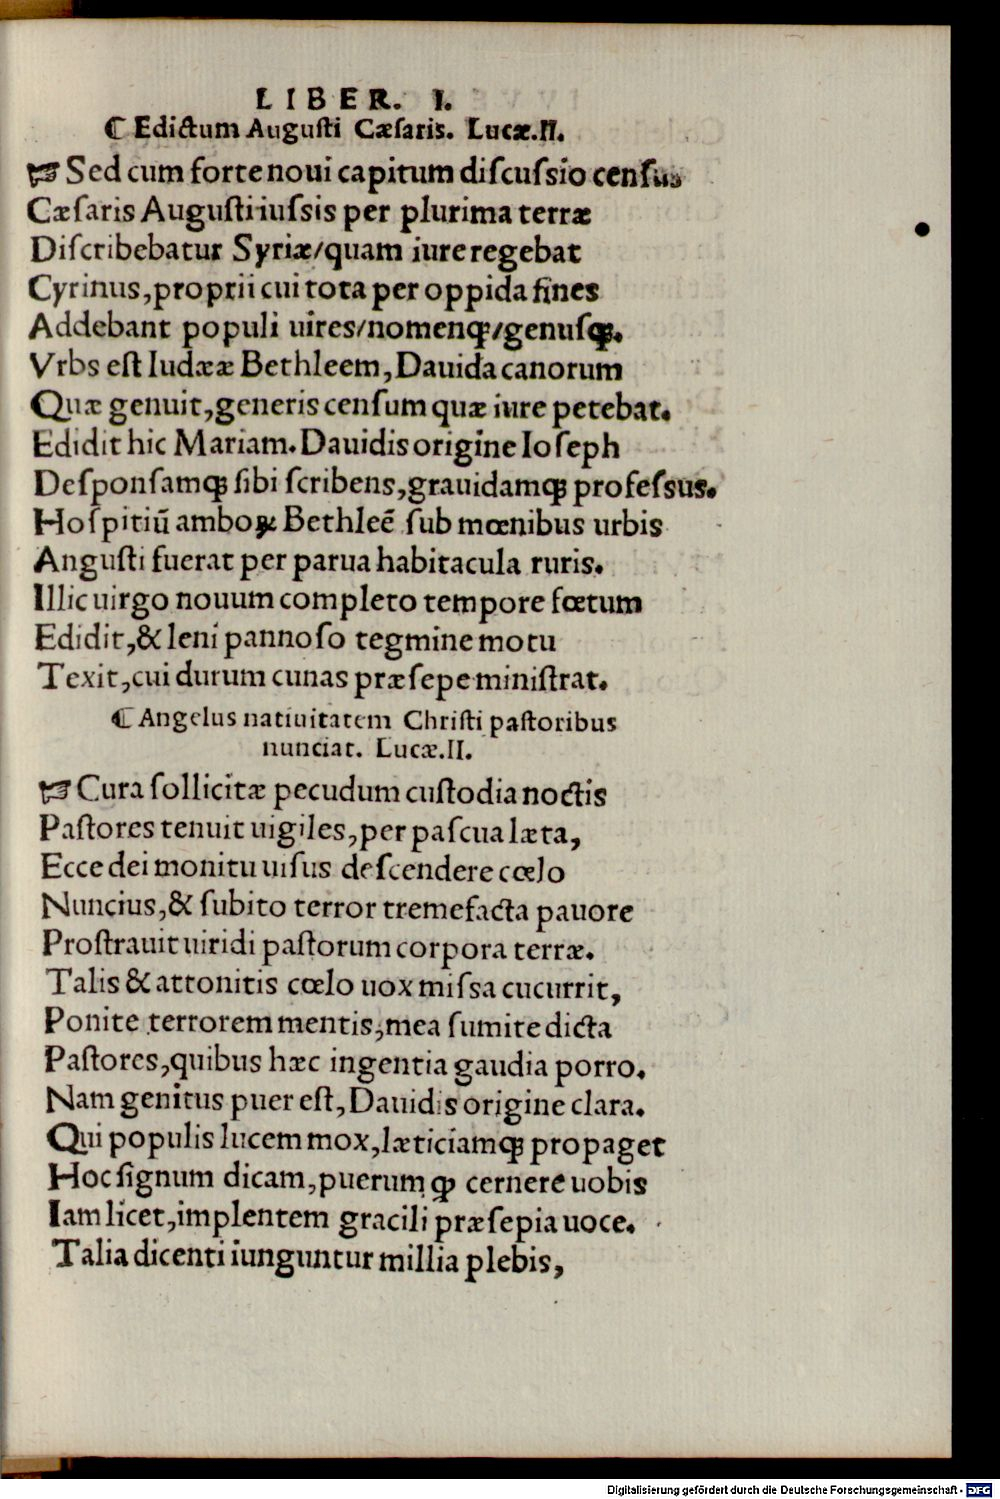 LIBER. I.
⁋ Edictum Augusti Cæsaris. Lucæ.II.
☞ Sed cum forte noui capitum discussio census
Cæsaris Augusti iussis per plurima terræ
Discribebatur Syriæ/quam iure regebat
Cyrinus,proprii cui tota per oppida fines
Addebant populi uires/nomenqꝫ/genusqꝫ.
Vrbs est Iudææ Bethleem,Dauida canorum
Quæ genuit,generis censum quæ iure petebat.
Edidit hic Mariam.Dauidis origine Ioseph
Desponsamqꝫ sibi scribens,grauidamqꝫ professus.
Hospitiū amboꝝ Bethleē sub mœnibus urbis
Angusti fuerat per parua habitacula ruris.
Illic uirgo nouum completo tempore fœtum
Edidit,& leni pannoso tegmine motu
Texit,cui durum cunas præsepe ministrat.
⁋ Angelus natiuitatem Christi pastoribus
nunciat. Lucæ.II.
☞ Cura sollicitæ pecudum custodia noctis
Pastores tenuit uigiles,per pascua læta,
Ecce dei monitu uisus descendere cœlo
Nuncius,& subito terror tremefacta pauore
Prostrauit uiridi pastorum corpora terræ.
Talis & attonitis cœlo uox missa cucurrit,
Ponite terrorem mentis,mea sumite dicta
Pastores,quibus hæc ingentia gaudia porro.
Nam genitus puer est,Dauidis origine clara.
Qui populis lucem mox,læticiamqꝫ propaget
Hoc signum dicam,puerum qꝫ cernere uobis
Iam licet,implentem gracili præsepia uoce.
Talia dicenti iunguntur millia plebis,
Digitalisierung gefördert durch die Deutsche Forschungsgemeinschaft - DFG